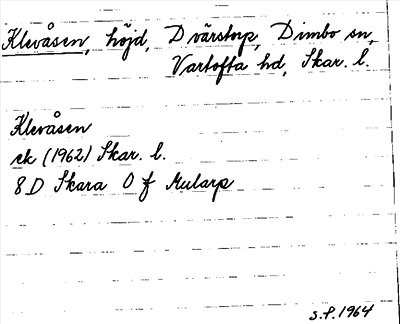 Klevåsen, höjd, Dvärstorp, Dimbo sn,
Vartofta hd, Skar. l.
Klevåsen
ek (1962) Skar. l.
8D Skara O f Mularp
S.P. 1964